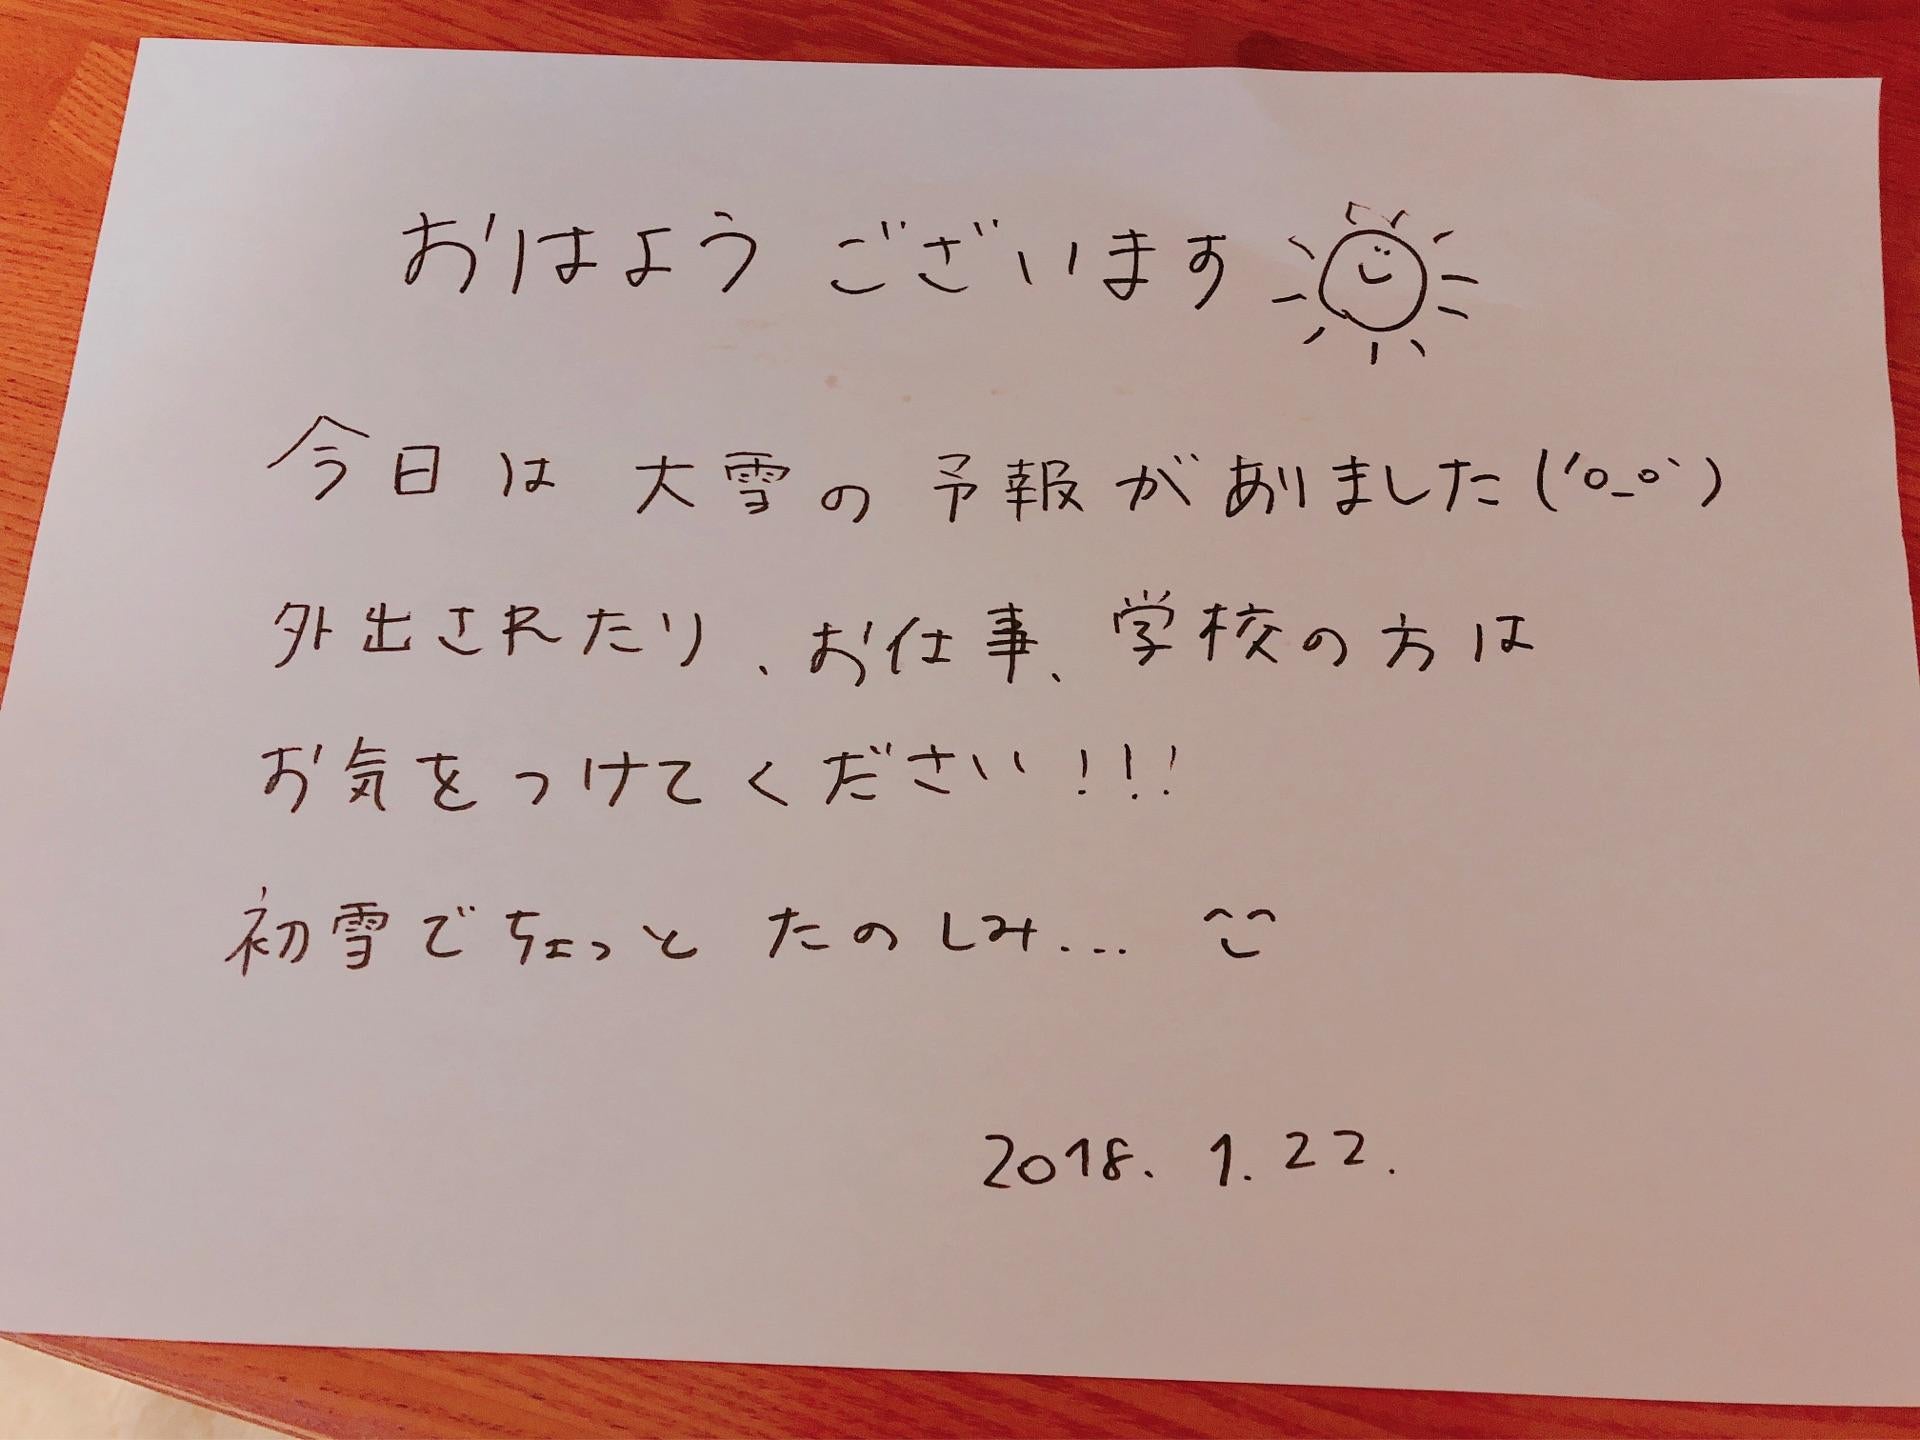 おはよう ございます
今日は 大雪の 予報が ありました('o_o`)
外出されたり、お仕事、学校の方は
お気をつけてください!!!
初雪でちょっと たのしみ...
2018. 1. 22.